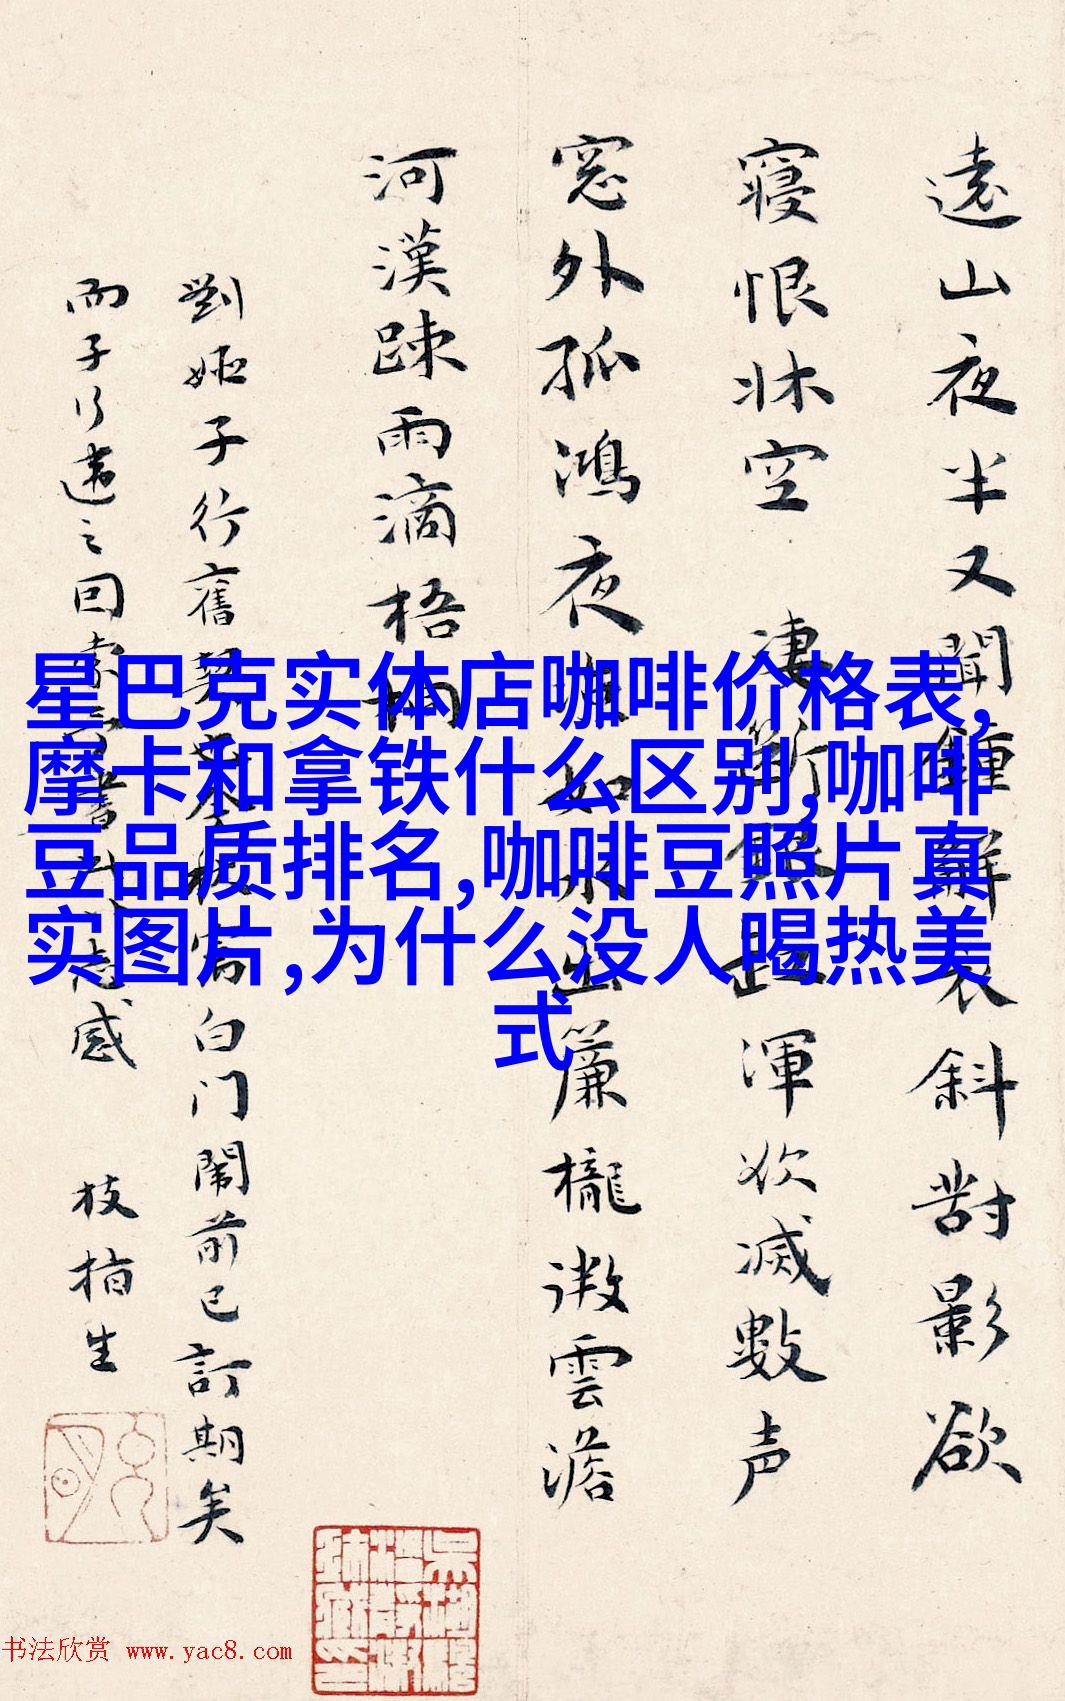 遠山夜半又聞鍾辭衾斜對影欲
寢恨牀空 凄斷
渾欲滅數声
窓外孤鴻夜
如水
簾櫳微雲澹
河漢疎雨滴梧桐
劉姬子行舊
寄白门闈前已訂期矣
而子行遠之回索
書以志感 枝指生
星巴克实体店咖啡价格表,
摩卡和拿铁什么区别,咖啡
豆品质排名,咖啡豆照片真
实图片,为什么没人喝热美
式
书法欣赏 www.yac8.com